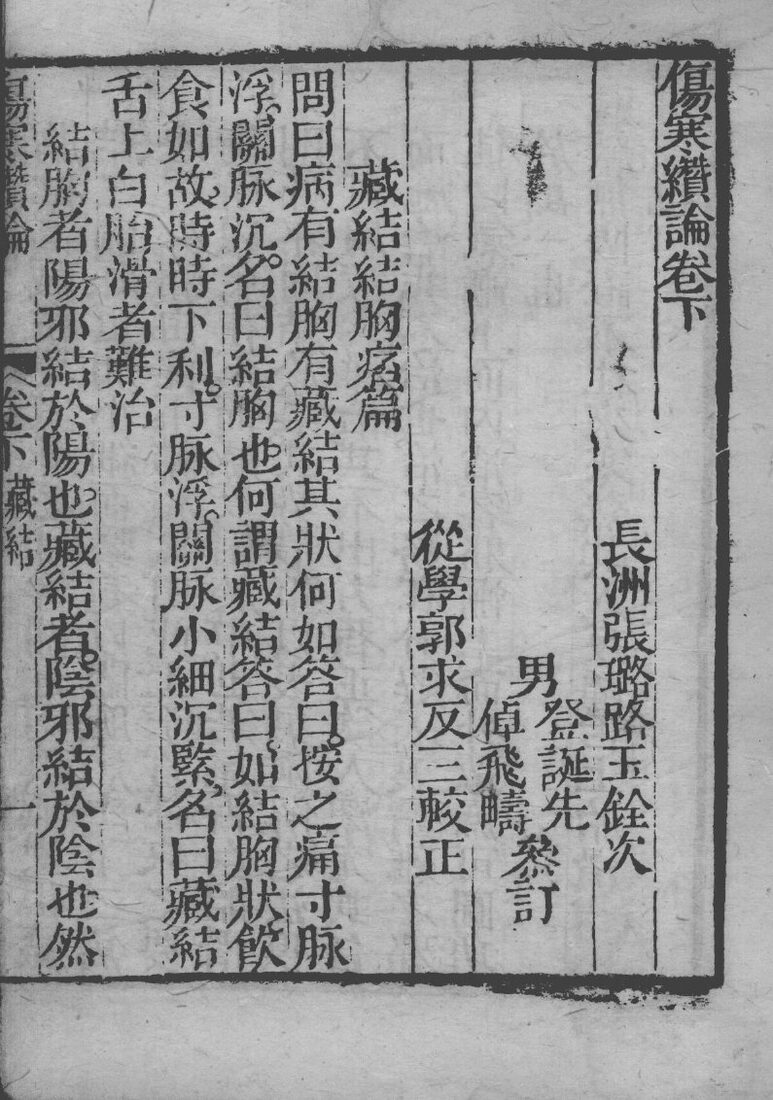 傷寒纘論卷下
長洲張璐路玉銓次
男
登誕先
倬飛疇
叅訂
從學郭求反三較正
藏結結胸痞篇
問曰病有結胸有藏結其狀何如答曰。按之痛寸脉
浮。關脉沉。名曰結胸也。何謂藏結答曰。如結胸狀。飲
食如故。時時下利。寸脉浮。關脉小細沉緊。名曰藏結
舌上白胎滑者難治
結胸者陽邪結於陽也。藏結者。陰邪結於陰也然
傷寒纘論
卷下
藏結
一